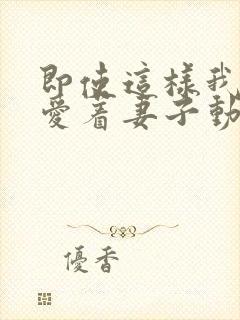 即使這樣我
愛著妻子動
優香